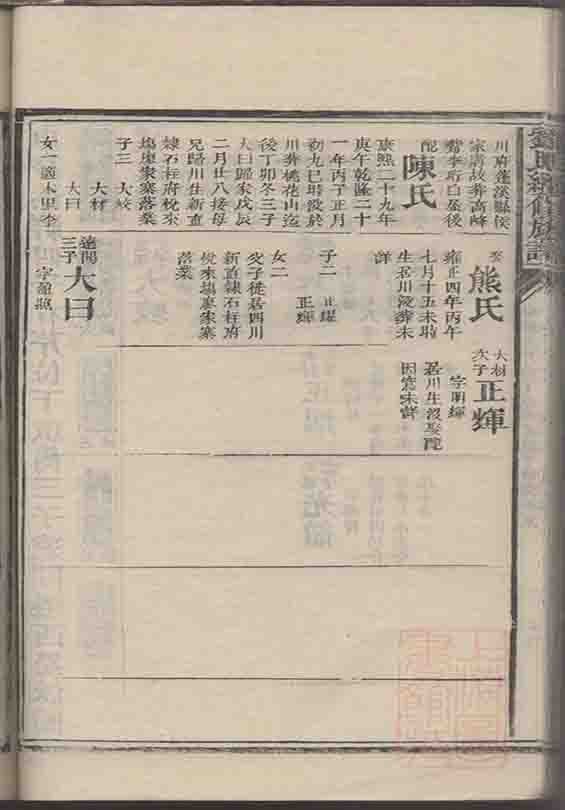 川府蓬溪縣侯
家溝故葬高峰
嘴李珩白屋後
配陳氏
康熙二十九年
庚午乾隆二十
一年丙子正月
初九巳時歿於
川葬桃花山迄
後丁卯冬三子
大曰歸家戊辰
二月廿八接母
兄歸川生新直
隸石柱府梘來
塲衷家寨落業
子三 大紋
大材
大曰
女一適木里李
娶熊氏
雍正四年丙午
七月十五未時
生居川歿葬未
詳
子二 正耀
正輝
女二
父子徙居四川
新直隸石柱府
梘來塲衷家寨
落業
遠開三子大曰
字盈照
大材次子正輝
字明輝
居川生歿娶院
因窵未詳
續修族譜
上海圖書館藏